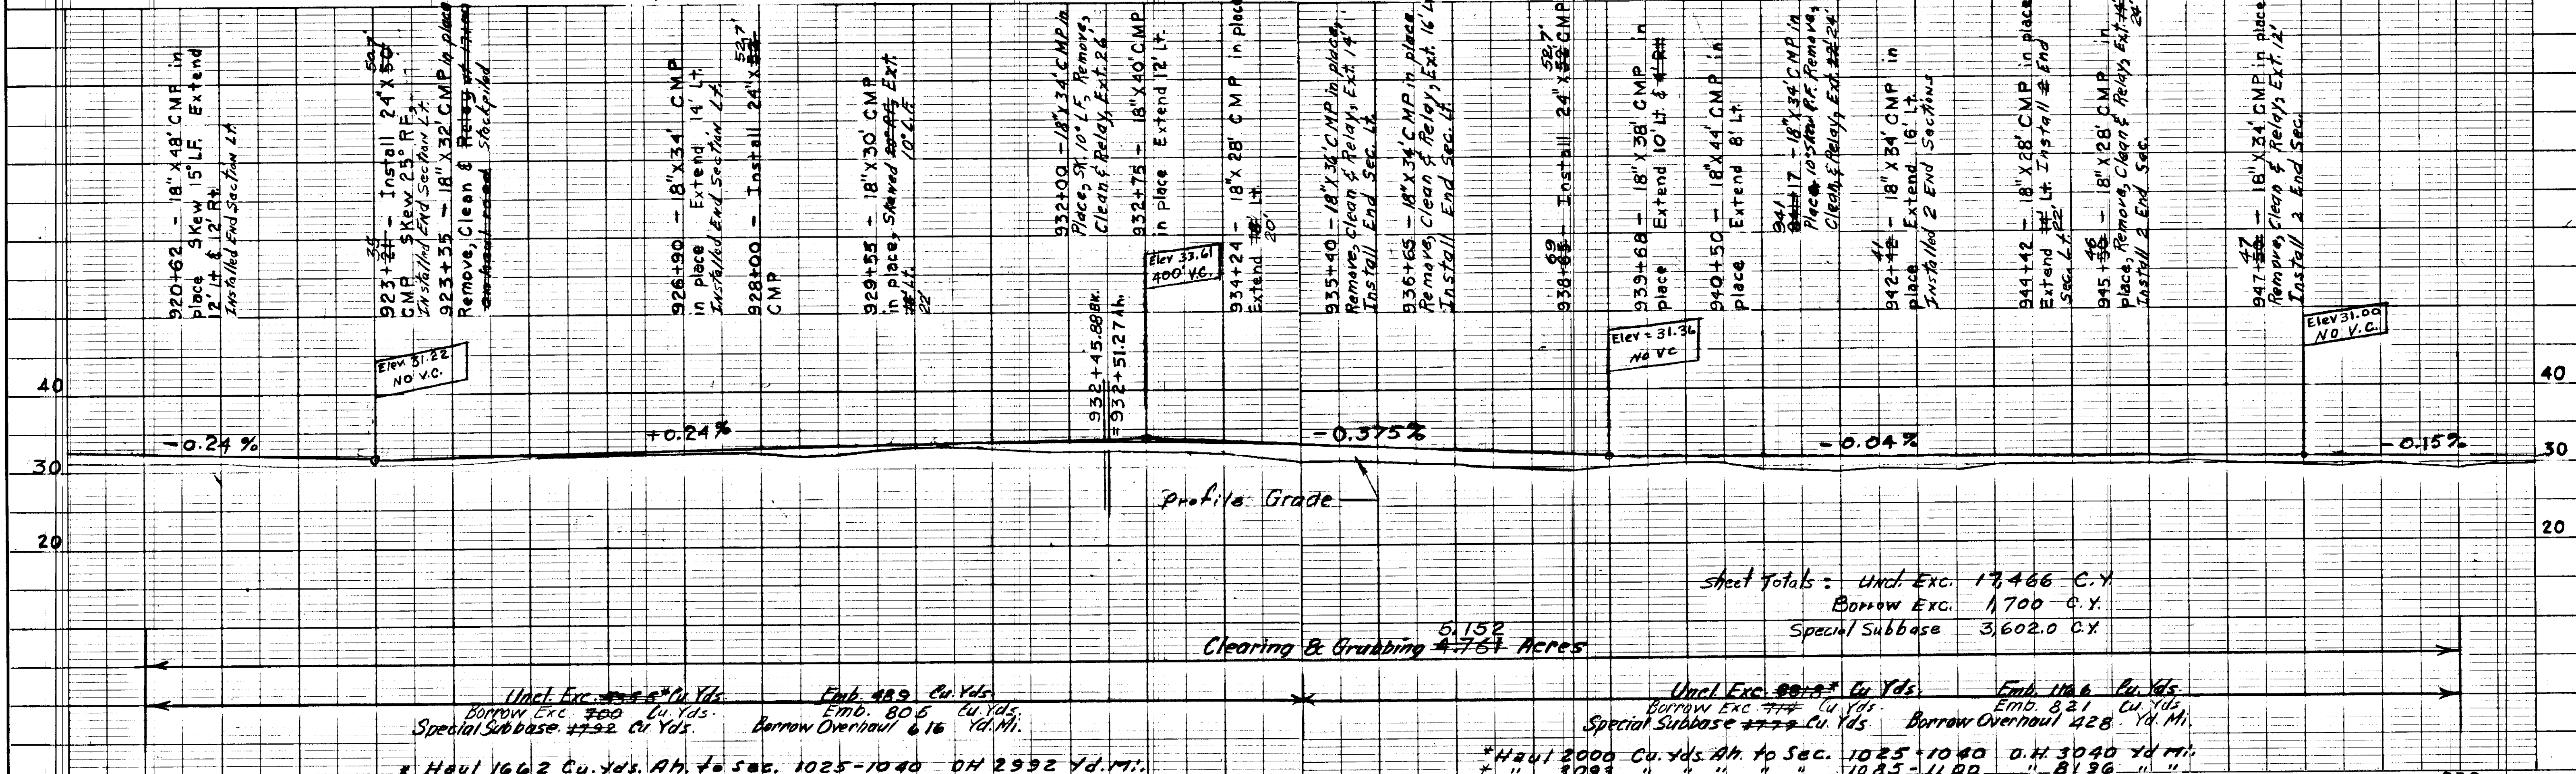 920+62 - 18"X48' CMP in
place Skew 15° LF. Extend
12' Lt & 12' Rt.
Installed End Section Lt
35
50.7'
923+21 - Install 24"X50'
CMP Skew 25° RF,
Installed End Section Lt.
923+35 - 18"X32' CMP in place
Remove, Clean & Relay
Stockpiled
926+90 - 18"X34' CMP
in place Extend 14' Lt.
Installed End Section Lt.
52.7'
928+00 - Install 24"X52'
CMP
929+55 - 18"X30' CMP
in place, Skewed 20° RF, Ext.
10° L.F.
18' Lt.
22'
932+00 - 18"X34' CMP in
Place, SK. 10° LF, Remove,
Clean & Relay, Ext. 26'
932+75 - 18"X40' CMP
in place Extend 12' Lt.
934+24 - 18"X28' CMP in place
Extend 18' Lt.
20'
935+40 - 18"X36' CMP in place,
Remove, Clean & Relay, Ext. 14',
Install End Sec. Lt.
936+65 - 18"X34' CMP in place
Remove, Clean & Relay, Ext. 16'
Install End Sec. Lt
69
52.7'
938+65 - Install 24"X52' CMP
939+68 - 18"X38' CMP in
place Extend 10' Lt & 4' Rt
940+50 - 18"X44' CMP in
place Extend 8' Lt.
941
941+17 - 18"X34' CMP in
Place 10° Skew R.F. Remove,
Clean & Relay, Ext. 22' 24'
41
942+42 - 18"X34' CMP in
place Extend 16' Lt.
Installed 2 End Sections
944+42 - 18"X28' CMP in place
Extend 14' Lt. Install 2 End
Sec. Lt 22'
46
945+50 - 18"X28' CMP in
place, Remove, Clean & Relay, Ext. 14'
24'
Install 2 End Sec.
47
947+50 - 18"X34' CMP in place
Remove, Clean & Relay, Ext. 12'
Install 2 End Sec.
Elev 31.22
NO V.C.
932+45.88 BK.
=932+51.27 Ah.
Elev 33.61
400' V.C.
Elev = 31.36
NO VC
Elev 31.00
NO. V.C.
40
40
-0.24 %
+0.24%
-0.375%
-0.04%
-0.15%
30
30
Profile Grade
20
20
Sheet Totals: Uncl. Exc. 17,466 C.Y.
Borrow Exc. 1,700 C.Y.
Special Subbase 3,602.0 C.Y.
5.152
Clearing & Grubbing 4.761 Acres
Uncl. Exc. Cu. Yds. Emb. 489 Cu. Yds.
Borrow Exc. 700 Cu. Yds. Emb. 805 Cu. Yds.
Special Subbase 1792 Cu Yds. Borrow Overhaul 616 Yd. Mi.
* Haul 1662 Cu. Yds. Ah. to Sec. 1025-1040 OH 2992 Yd. Mi.
Uncl. Exc. Cu Yds. Emb. 1166 Cu. Yds.
Borrow Exc. 714 Cu Yds. Emb. 821 Cu. Yds
Special Subbase 1779 Cu. Yds. Borrow Overhaul 428 Yd. Mi.
*Haul 2000 Cu. Yds. Ah. to Sec. 1025-1040 O.H. 3040 Yd Mi.
* " " " " " 1085-1100 " 8196 " "